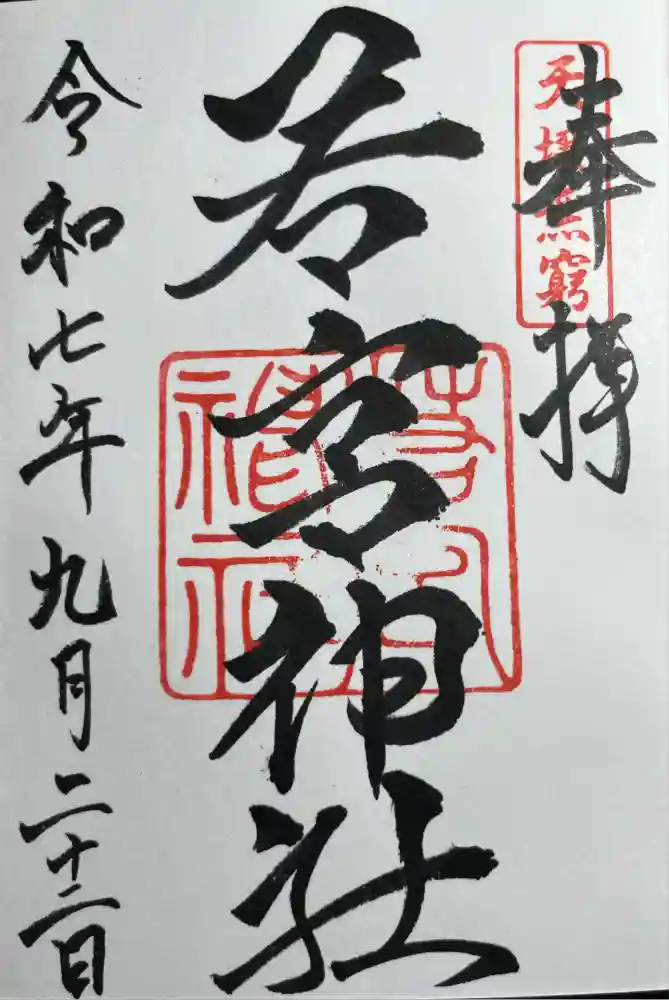 奉拝
天壌無窮
若宮神社
令和七年九月二十二日